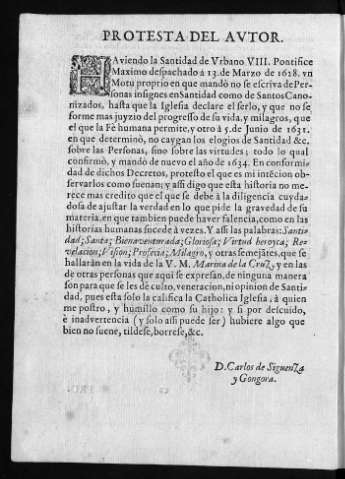 PROTESTA DEL AVTOR.
HAviendo la Santidad de Vrbano VIII. Pontifice
Maximo despachado à 13. de Marzo de 1628. vn
Motu proprio en que mandò no se escriva de Per-
sonas insignes en Santidad como de Santos Cano-
nizados, hasta que la Iglesia declare el serlo, y que no se
forme mas juyzio del progresso de su vida, y milagros, que
el que la Fè humana permite, y otro à 5. de Junio de 1631.
en que determinò, no caygan los elogios de Santidad &c.
sobre las Personas, sino sobre las virtudes; todo lo qual
confirmò, y mandò de nuevo el año de 1634. En conformi-
dad de dichos Decretos, protesto el que es mi intēcion ob-
servarlos como suenan; y assi digo que esta historia no me-
rece mas credito que el que se debe à la diligencia cuyda-
dosa de ajustar la verdad en lo que pide la gravedad de su
materia, en que tambien puede haver falencia, como en las
historias humanas sucede à vezes. Y assi las palabras: Santi-
dad; Santa; Bienaventurada; Gloriosa; Virtud heroyca; Re-
velacion; Vision; Profecia; Milagro, y otras semejātes, que se
hallaràn en la vida de la V. M. Marina de la Cruz, y en las
de otras personas que aqui se expresan, de ninguna manera
son para que se les dè culto, veneracion, ni opinion de Santi-
dad, pues esta solo la califica la Catholica Iglesia, à quien
me postro, y humillo como su hijo: y si por descuido,
è inadvertencia (y solo assi puede ser) hubiere algo que
bien no suene, tildese, borrese, &c.
D. Carlos de Siguenza
y Gongora.